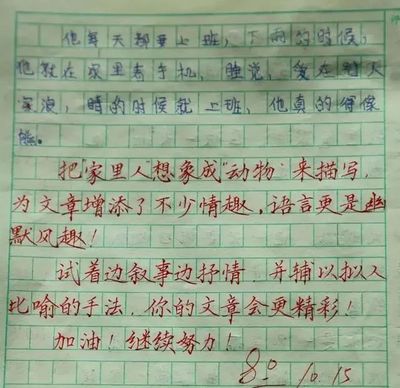 他每天都要上班，下雨的时候，
他就在家里看手机，睡觉，
晴的时候就上班，他真的很像
熊。
把“家里人”想象成“动物”来描写，
为文章增添了不少情趣，语言更是幽
默风趣！
试着边叙事边抒情，并辅以拟人
比喻的手法，你的文章会更精彩！
加油！继续努力！
80 10.15